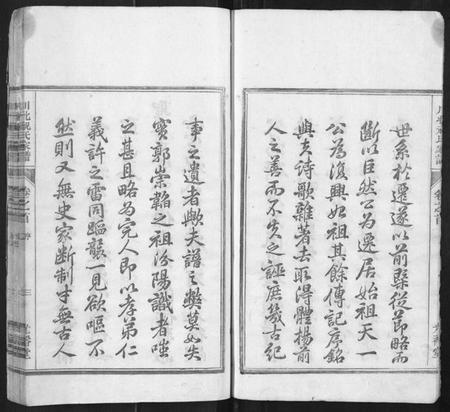 世系於遷蓬以前槩從節略而
斷以巨然公為遷居始祖天一
公為復興始祖其餘傳記序銘
與夫詩歌雜著去取得體揚前
人之善而不失之誣庶幾古紀
事之遺者歟夫譜之弊莫如失
實郭崇韜之祖汾陽識者嗤
之甚且略為完人即以孝弟仁
義許之雷同蹈襲一見欲嘔不
然則又無史家斷制才無古人
卷之首
序